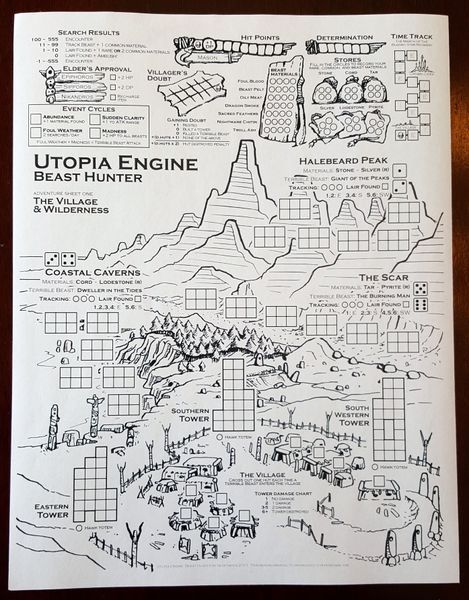 Search Results
100 - 555 Encounter
11 - 99 Track Beast + 1 common material
1 - 10 Lair Found + 1 rare or 2 common materials
0 Lair Found + Ambush!
-1 - -555 Encounter
Elder's Approval
Ephiphoros +2 HP
Sifforos +2 DP
Nikandros Recharge
Event Cycles
Abundance
+1 material found
Sudden Clarity
+1 to ATK range
Foul Weather
2 searches /day
Madness
+2 HP to all beasts
Foul Weather + Madness = Terrible Beast Attack
Villager's Doubt
Gaining Doubt
Hit Points
Mason
Determination
Time Track
Beast Materials
Foul Blood
Beast Pelt
Oily Meat
Dragon Smoke
Sacred Feathers
Nightmare Chitin
Stores
Stone Cord Tar
Silver Lodestone Pyrite
Utopia Engine
Beast Hunter
Adventure Sheet One
The Village
& Wilderness
Halebeard Peak
Materials: Stone - Silver (R)
Terrible Beast: Giant of the Peaks
Tracking: Lair Found
1,2: E 3,4: S 5,6: SW
Coastal Caverns
Materials: Cord - Lodestone (R)
Terrible Beast: Dweller in the Tides
Tracking: Lair Found
1,2,3,4: E 5,6: S
The Scar
Materials: Tar - Pyrite (R)
Terrible Beast: The Burning Man
Tracking: Lair Found
1: E 2,3: S 4,5,6: SW
Southern Tower
Hawk Totem
South Western Tower
Hawk Totem
Eastern Tower
Hawk Totem
The Village
Cross out one hut each time a
Terrible Beast enters the village
Tower Damage Chart
1 No Damage
2 1 Damage
3-5 2 Damage
6+ Tower Destroyed